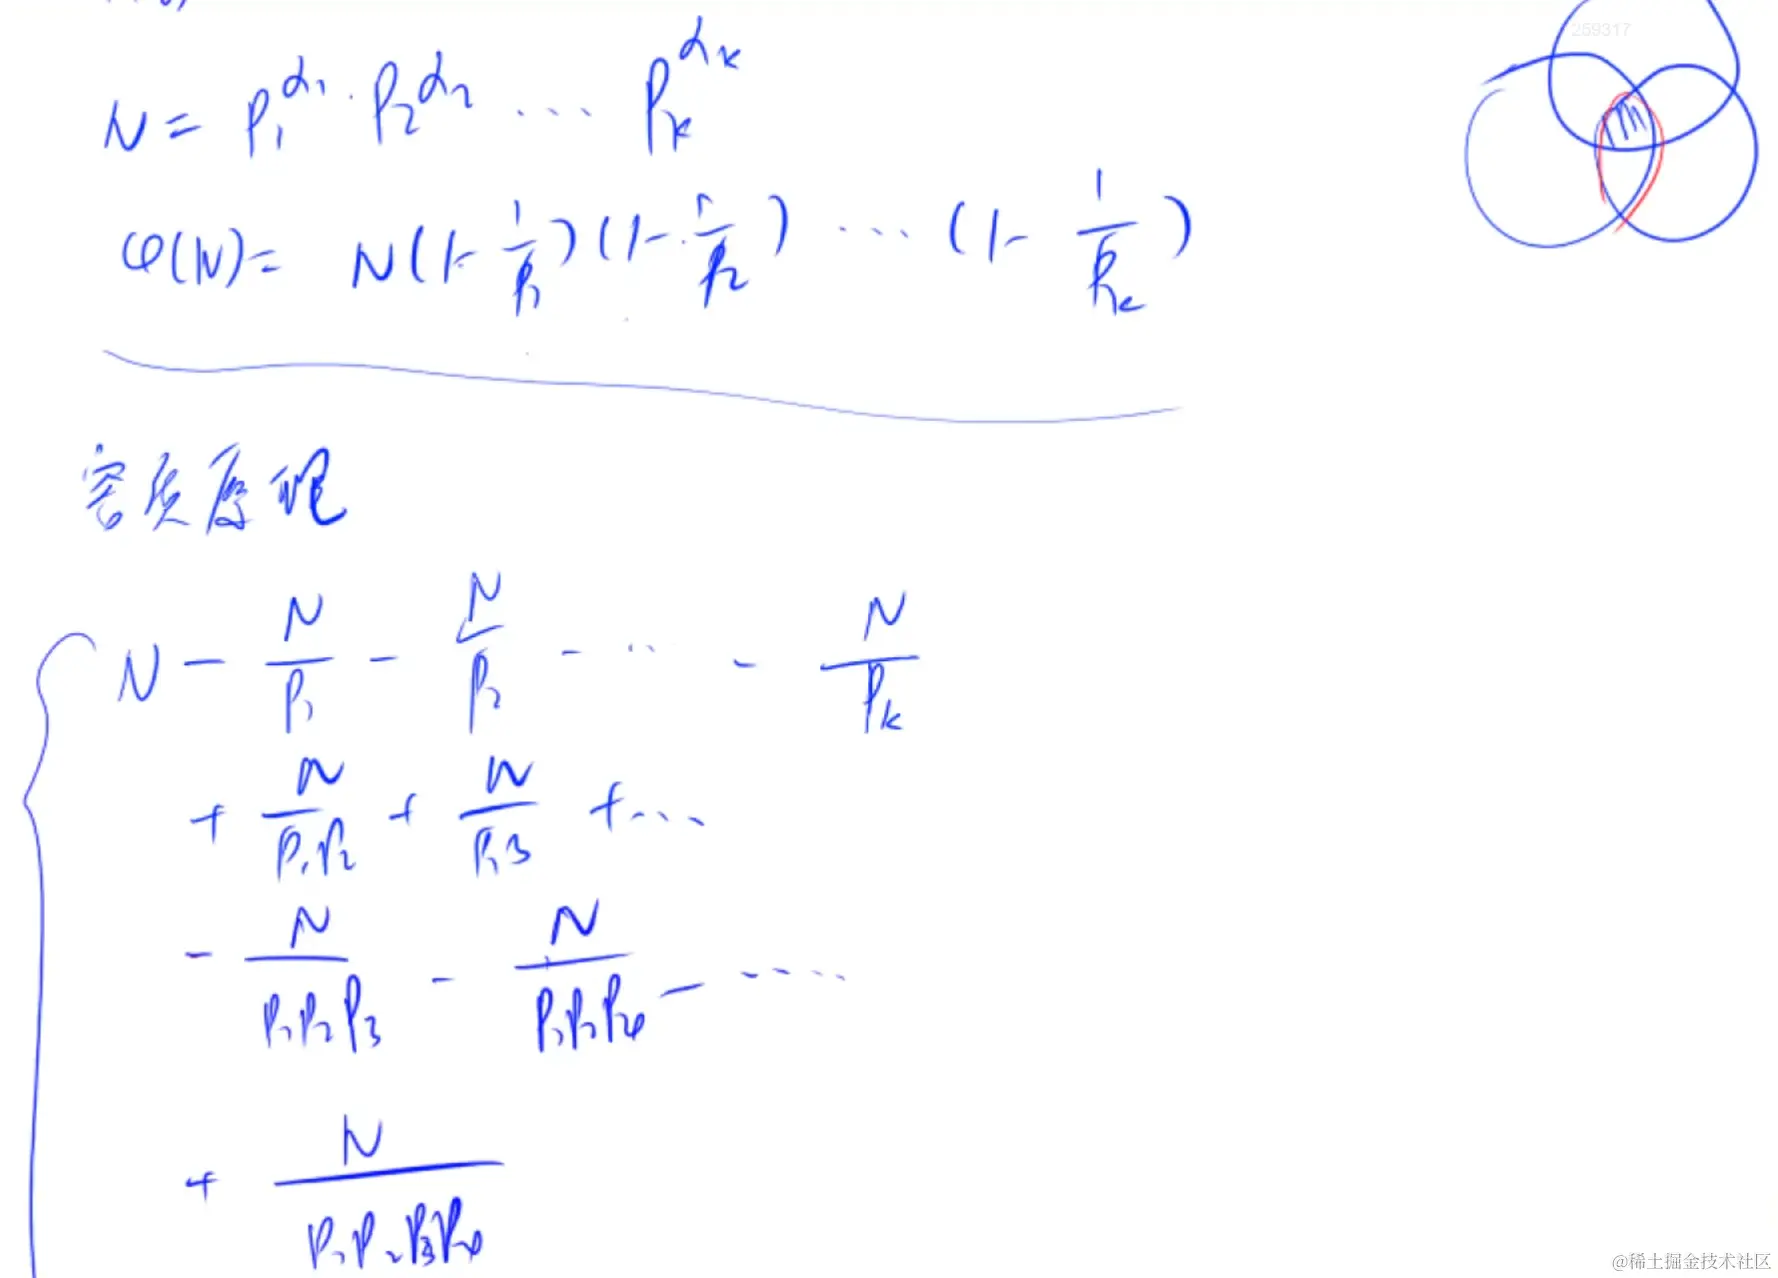 259317
N = P₁^α₁ · P₂^α₂ ... Pₖ^αₖ
φ(N) = N(1 - 1/P₁)(1 - 1/P₂) ... (1 - 1/Pₖ)
容斥原理
N - N/P₁ - N/P₂ - ... - N/Pₖ
+ N/P₁P₂ + N/P₁₃ + ...
- N/P₁P₂P₃ - N/P₁P₂P₄ - ....
+ N/P₁P₂P₃P₄
@稀土掘金技术社区